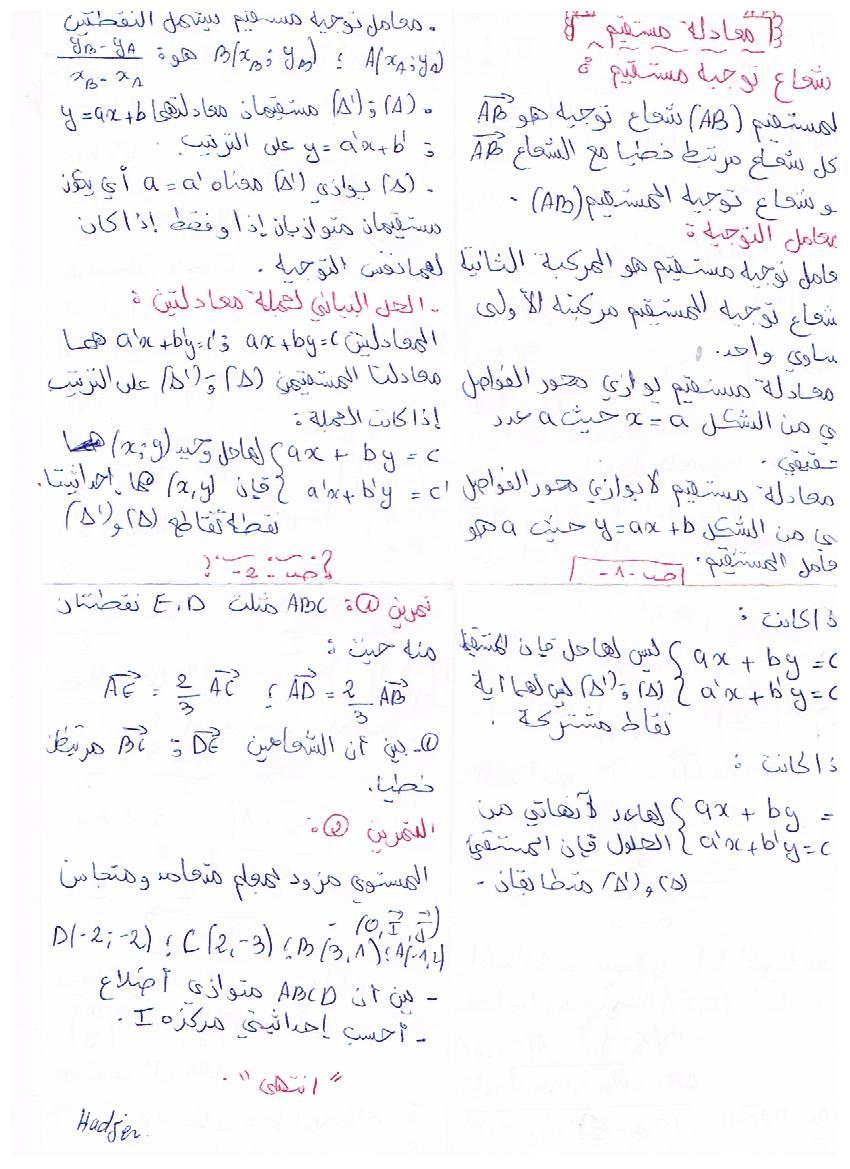 معادلة مستقيم
شعاع توجيه مستقيم :
لمستقيم (AB) شعاع توجيه هو AB
كل شعاع مرتبط خطيا مع الشعاع AB
و شعاع توجيه المستقيم (AB).
عامل التوجيه :
عامل توجيه مستقيم هو المركبة الثانية
شعاع توجيه المستقيم مركبته الأولى
ساوي واحد.
معادلة مستقيم يوازي محور الفواصل
ي من الشكل x = a حيث a عدد
حقيقي.
معادلة مستقيم لا يوازي محور الفواصل
ي من الشكل y=ax+b حيث a هو
عامل المستقيم.
ص -1-
. معامل توجيه مستقيم يشمل النقطتين
A(xA;yA) ; B(xB;yB) هو: yB-yA / xB-xA
. (Δ) و (Δ') مستقيمان معادلتهما y=ax+b
و y=a'x+b' على الترتيب.
. (Δ) يوازي (Δ') معناه a=a' أي يكون
مستقيمان متوازيان إذا و فقط إذا كان
لهما نفس التوجيه.
- الحل البياني لجملة معادلتين :
المعادلتين ax+by=c و a'x+b'y=c' هما
معادلتا المستقيمين (Δ) و (Δ') على الترتيب
إذا كانت الجملة :
{ ax + by = c لها حل وحيد (x;y)
{ a'x + b'y = c' فإن (x,y) هما إحداثيتا
نقطة تقاطع (Δ) و (Δ')
ص -2-
ذا كانت :
{ ax + by = c ليس لها حل فإن المستقيم
{ a'x + b'y = c (Δ) و (Δ') ليس لهما أية
نقاط مشتركة.
ذا كانت :
{ ax + by = لها عدد لانهائي من
{ a'x + b'y = c الحلول فإن المستقي
(Δ) و (Δ') متطابقان.
تمرين 1: ABC مثلث E, D نقطتان
منه حيث :
AE = 2/3 AC ; AD = 2/3 AB
1- بين أن الشعاعين DE و BC مرتبطان
خطيا.
التمرين 2:
المستوي مزود لمعلم متعامد و متجانس
(O, I, J)
D(-2;-2) ; C(2,-3) ; B(3,1) ; A(-1,2)
- بين أن ABCD متوازي أضلاع
- أحسب إحداثيتي مركزه I.
"انتهى".
Hadjer